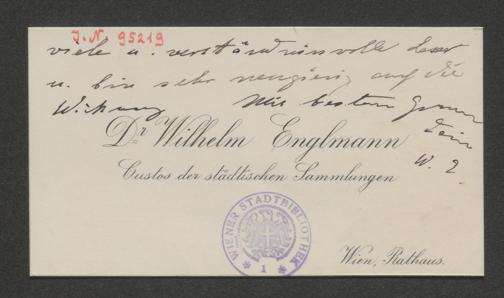 J. N. 95219
viele u. verständnisvolle Leser
u. bin sehr neugierig auf die
Wirkung Mit besten Grüssen
Dein
W. E.
Dr. Wilhelm Englmann
Custos der städtischen Sammlungen
WIENER STADTBIBLIOTHEK
1
Wien, Rathaus.